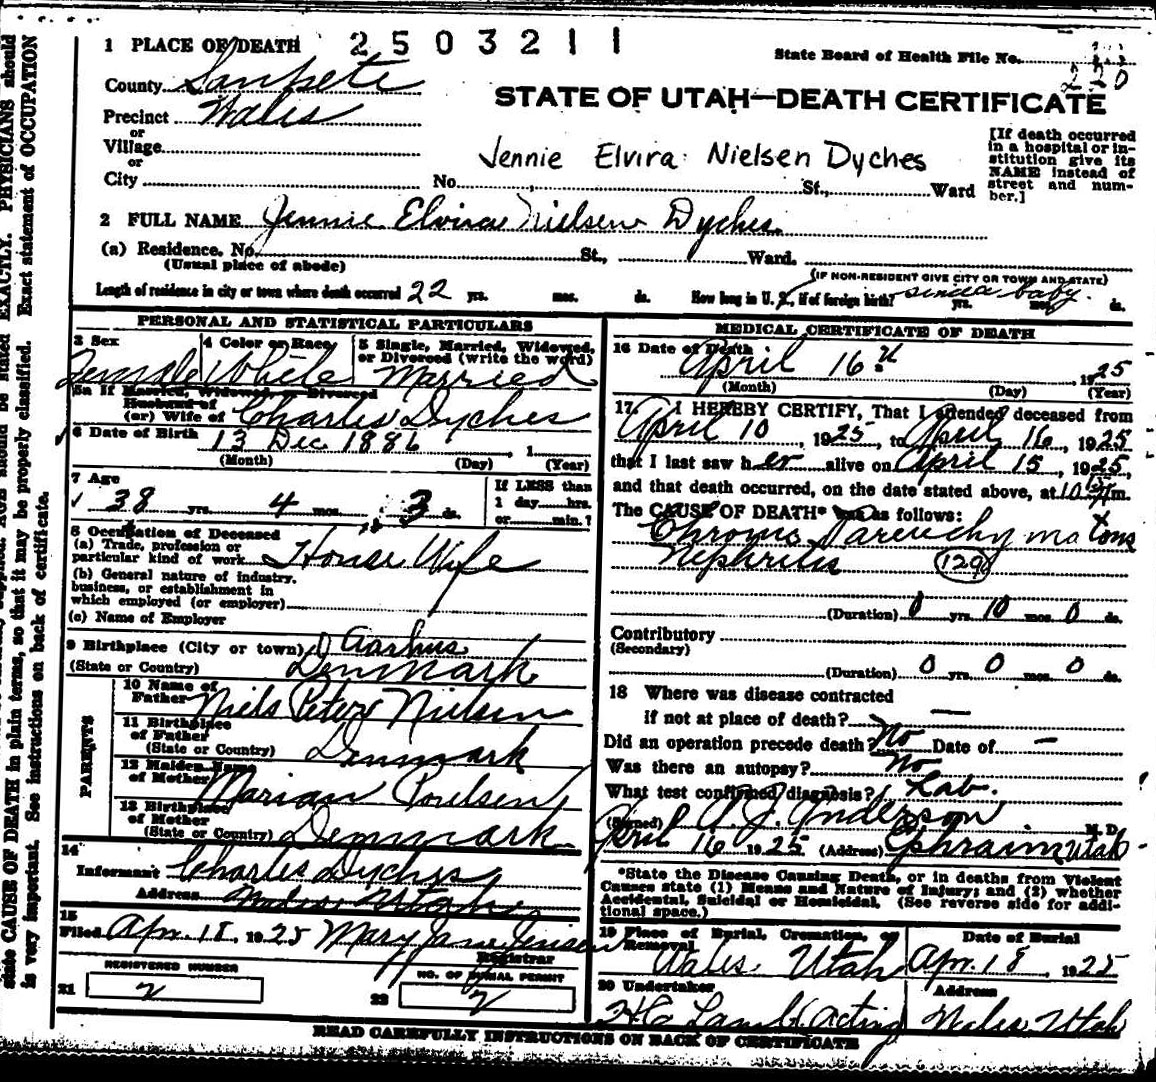 1 PLACE OF DEATH 2503211
State Board of Health File No. 220
County Sanpete
STATE OF UTAH—DEATH CERTIFICATE
Precinct Wales
or
Village
or
City No. St., Ward
[If death occurred in a hospital or institution give its NAME instead of street and number.]
Jennie Elvira Nielsen Dyches
2 FULL NAME Jennie Elvira Nielsen Dyches
(a) Residence. No. St., Ward.
(Usual place of abode) (IF NON-RESIDENT GIVE CITY OR TOWN AND STATE)
Length of residence in city or town where death occurred 22 yrs. mos. ds. How long in U. S., if of foreign birth? since baby yrs. mos. ds.
PERSONAL AND STATISTICAL PARTICULARS
3 Sex Female
4 Color or Race White
5 Single, Married, Widowed, or Divorced (write the word) Married
5a If Married, Widowed, or Divorced
Husband of
(or) Wife of Charles Dyches
6 Date of Birth 13 Dec 1886, 1
(Month) (Day) (Year)
7 Age
38 yrs. 4 mos. 3 ds.
If LESS than
1 day hrs.
or min.?
8 Occupation of Deceased
(a) Trade, profession or
particular kind of work House Wife
(b) General nature of industry,
business, or establishment in
which employed (or employer)
(c) Name of Employer
9 Birthplace (City or town) Aarhus
(State or Country) Denmark
PARENTS
10 Name of
Father Niels Peter Nielsen
11 Birthplace
of Father
(State or Country) Denmark
12 Maiden Name
of Mother Marian Poulsen
13 Birthplace
of Mother
(State or Country) Denmark
14
Informant Charles Dyches
Address Wales Utah
15
Filed Apr. 18, 1925 Mary Jane Jensen
Registrar
REGISTERED NUMBER
21 2
NO. OF BURIAL PERMIT
22 2
MEDICAL CERTIFICATE OF DEATH
16 Date of Death
April 16, 1925
(Month) (Day) (Year)
17. I HEREBY CERTIFY, That I attended deceased from
April 10, 1925, to April 16, 1925
that I last saw her alive on April 15, 1925,
and that death occurred, on the date stated above, at 10 m.
The CAUSE OF DEATH* was as follows:
Chronic Parenchymatous
Nephritis 129
(Duration) 0 yrs. 10 mos. 0 ds.
Contributory
(Secondary)
(Duration) 0 0 0 ds.
18 Where was disease contracted
if not at place of death? —
Did an operation precede death? No Date of —
Was there an autopsy? No
What test confirmed diagnosis? Lab.
(Signed) A. J. Anderson M.D.
April 16 1925 (Address) Ephraim Utah
*State the Disease Causing Death, or in deaths from Violent
Causes state (1) Means and Nature of Injury; and (2) whether
Accidental, Suicidal or Homicidal. (See reverse side for addi-
tional space.)
19 Place of Burial, Cremation, or
Removal
Wales, Utah
Date of Burial
Apr. 18, 1925
20 Undertaker
H C Lamb (Acting
Address
Wales Utah
READ CAREFULLY INSTRUCTIONS ON BACK OF CERTIFICATE
EXACTLY. PHYSICIANS should
state CAUSE OF DEATH in plain terms, so that it may be properly classified. Exact statement of OCCUPATION
is very important. See instructions on back of certificate.